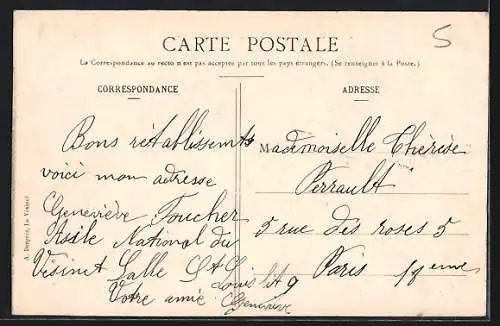 5
CARTE POSTALE
La Correspondance au recto n'est pas acceptée par tous les pays étrangers. (Se renseigner à la Poste.)
CORRESPONDANCE
Bons rétablissements
voici mon adresse
Geneviève Foucher
Asile National du
Vésinet Salle St
Louis lit 9
Votre amie
Geneviève
A. Bréger, Le Vésinet
ADRESSE
Mademoiselle Thérèse
Perrault
5 rue des roses 5
Paris 18eme